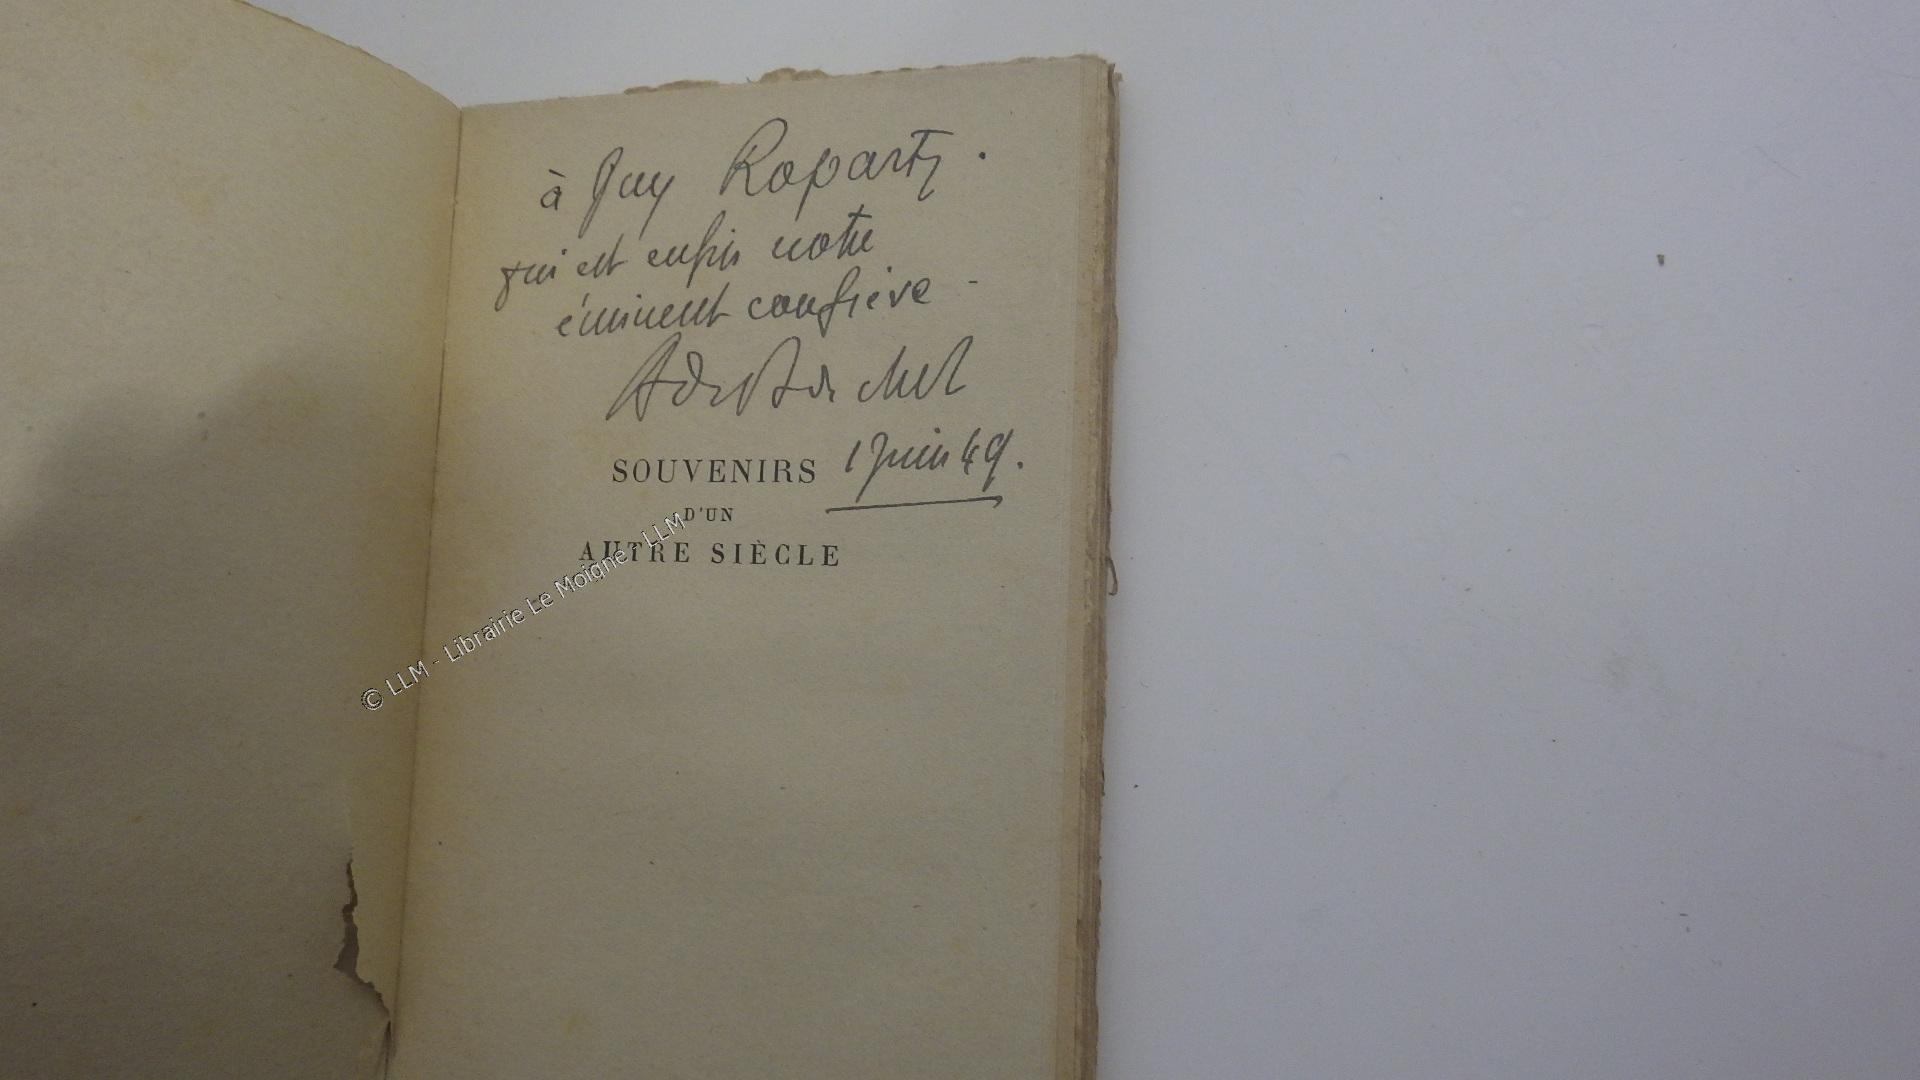 à Guy Ropartz.
qui est enfin notre
éminent confrère -
1 Juin 49.
SOUVENIRS
D'UN
AUTRE SIÈCLE
© LLM - Librairie Le Moigne - LLM